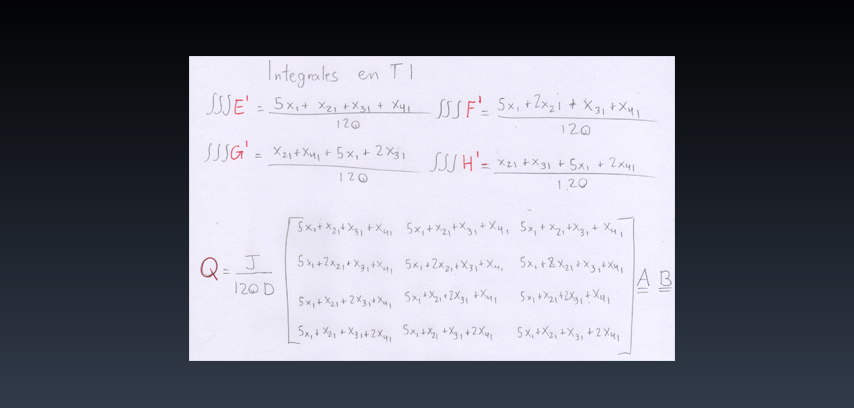 Integrales en T1
∭E' = 5x₁ + x₂₁ + x₃₁ + x₄₁ / 120 ∭F' = 5x₁ + 2x₂₁ + x₃₁ + x₄₁ / 120
∭G' = x₂₁ + x₄₁ + 5x₁ + 2x₃₁ / 120 ∭H' = x₂₁ + x₃₁ + 5x₁ + 2x₄₁ / 120
5x₁+x₂₁+x₃₁+x₄₁ 5x₁+x₂₁+x₃₁+x₄₁ 5x₁+x₂₁+x₃₁+x₄₁
Q = J / 120 D [ 5x₁+2x₂₁+x₃₁+x₄₁ 5x₁+2x₂₁+x₃₁+x₄₁ 5x₁+2x₂₁+x₃₁+x₄₁ ] A B
5x₁+x₂₁+2x₃₁+x₄₁ 5x₁+x₂₁+2x₃₁+x₄₁ 5x₁+x₂₁+2x₃₁+x₄₁
5x₁+x₂₁+x₃₁+2x₄₁ 5x₁+x₂₁+x₃₁+2x₄₁ 5x₁+x₂₁+x₃₁+2x₄₁